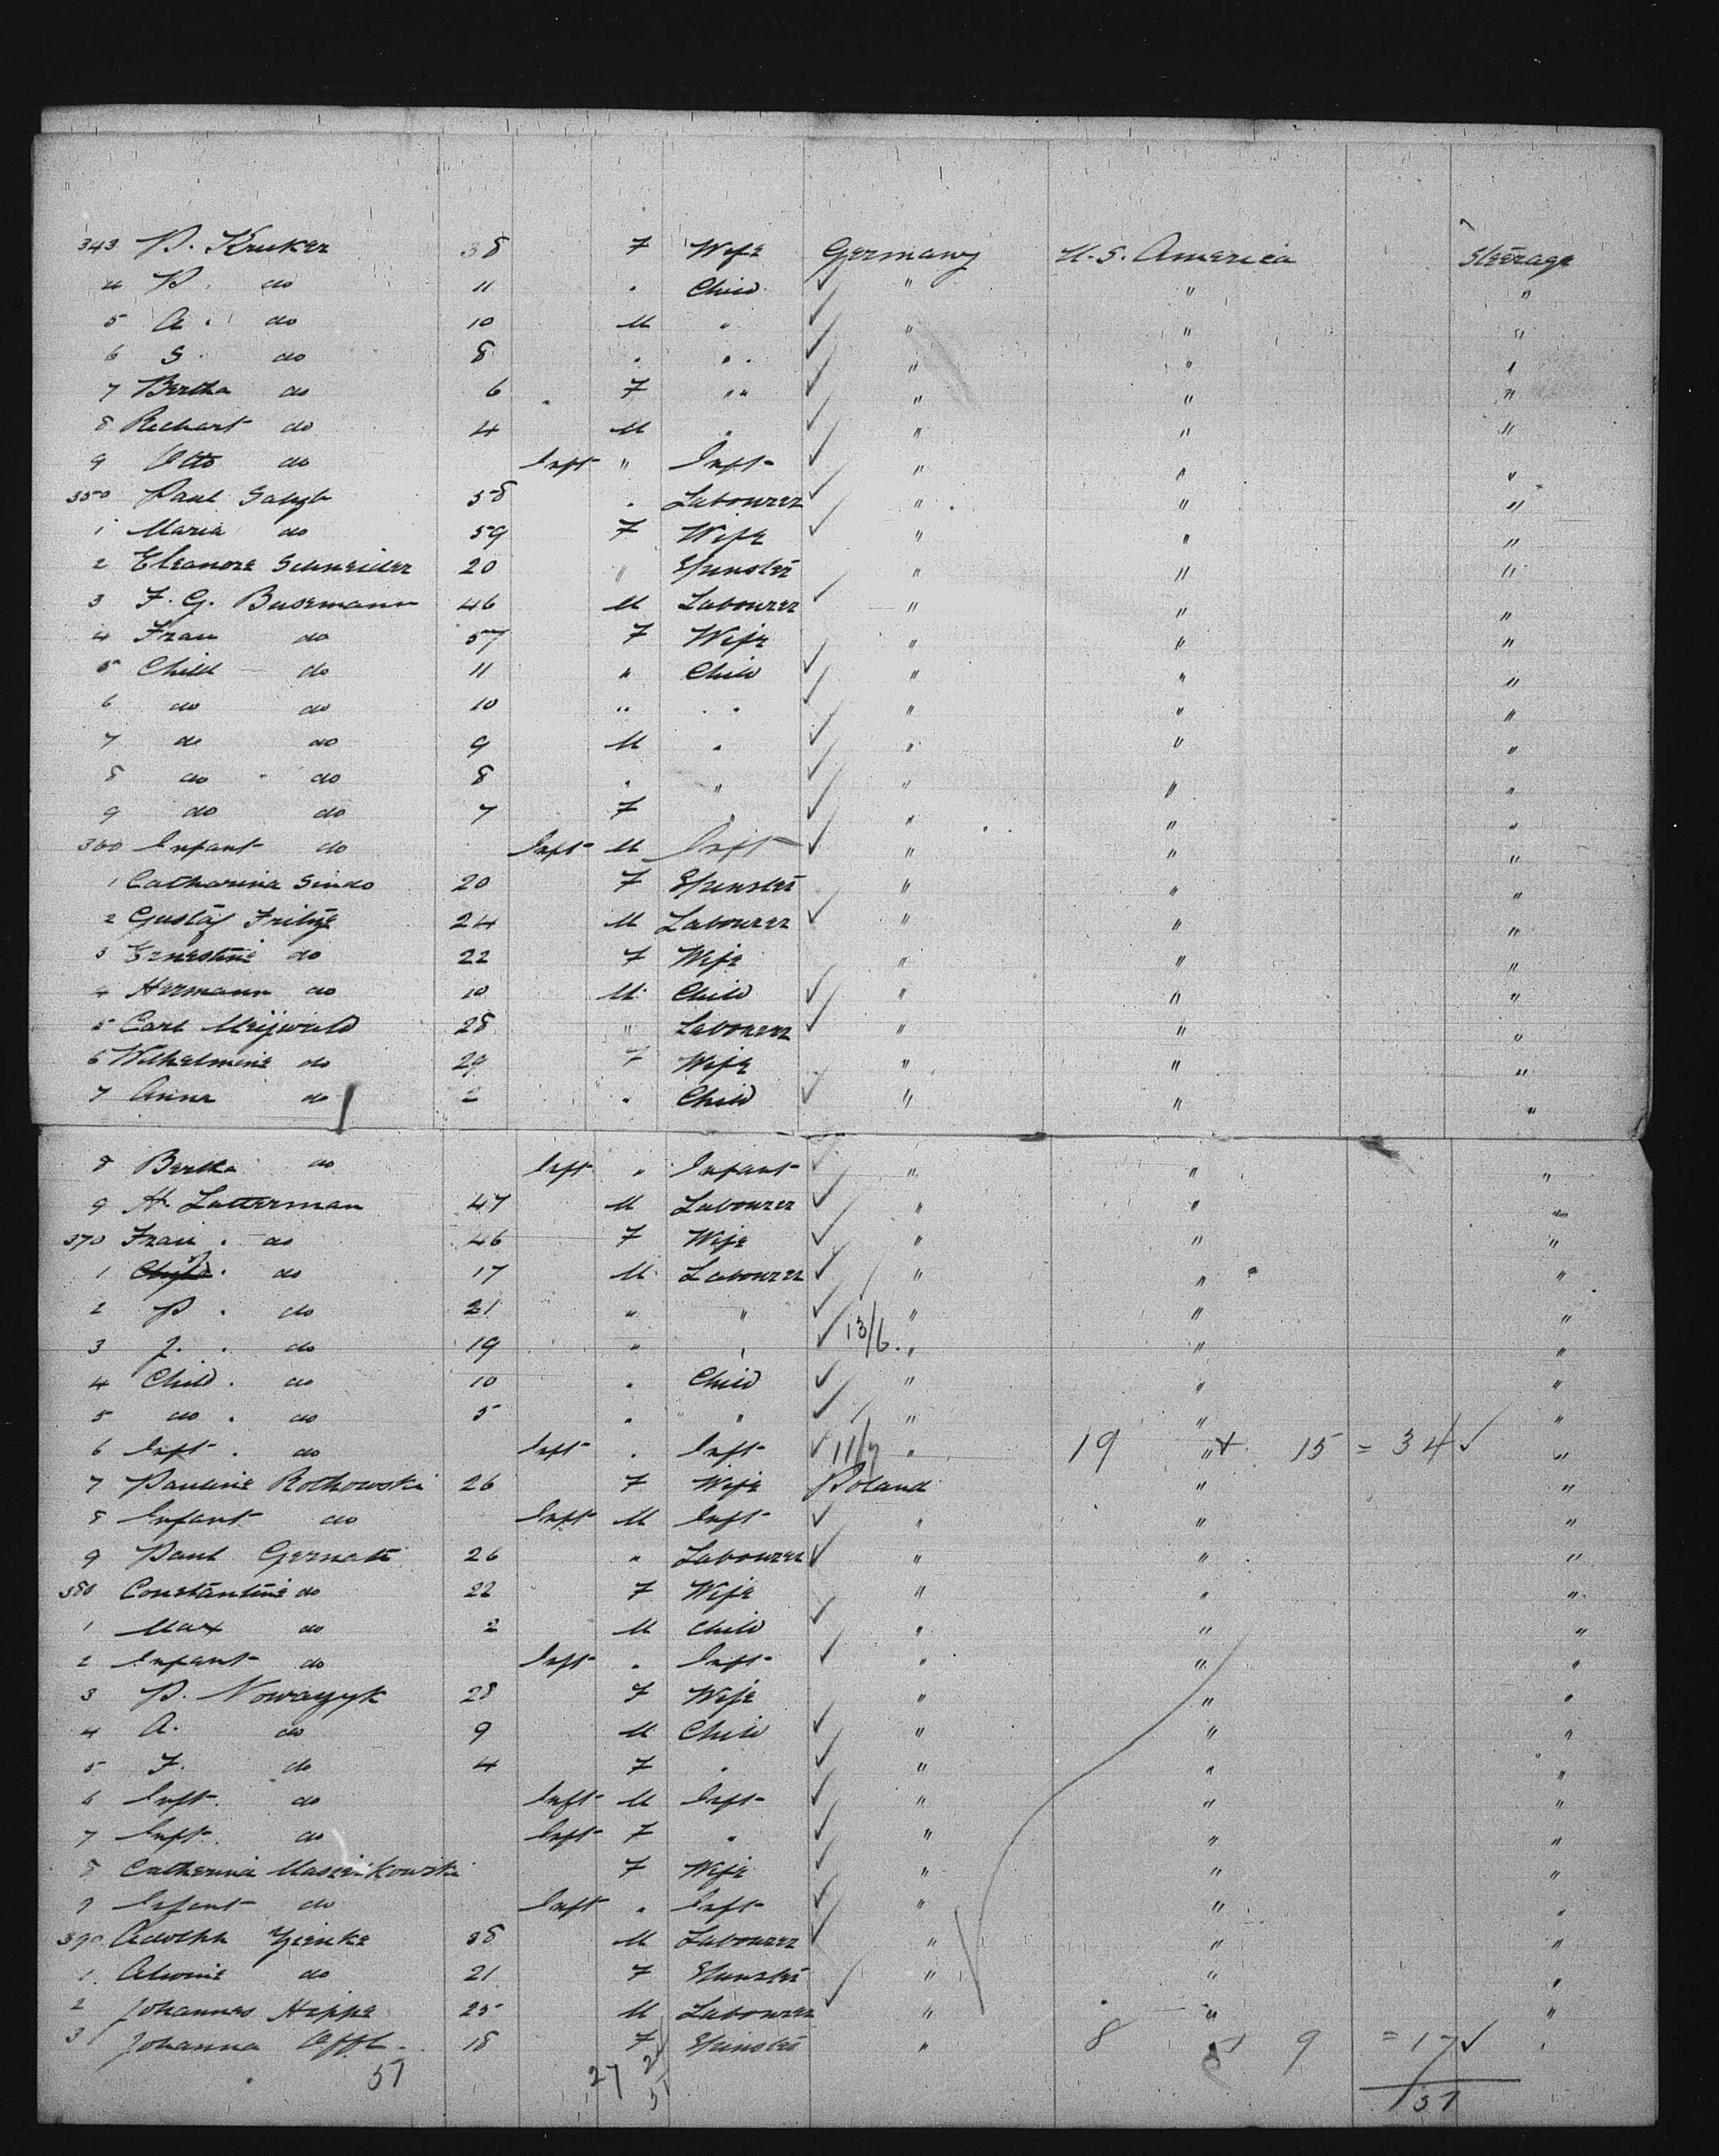 343 P. Kruker 38 F Wife Germany U.S. America Steerage
4 P. do 11 " Child ✓ " " "
5 A. do 10 M " ✓ " " "
6 S. do 8 " " ✓ " " "
7 Bertha do 6 F " ✓ " " "
8 Richart do 4 M " ✓ " " "
9 Otto do Inft " Inft ✓ " " "
350 Paul 58 " Labourer ✓ " " "
1 Maria do 59 F Wife ✓ " " "
2 Eleanore Schneider 20 " Spinster " " "
3 F. G. Busemann 46 M Labourer ✓ " " "
4 Frau do 57 F Wife " " "
5 Child do 11 " Child ✓ " " "
6 do do 10 " " ✓ " " "
7 do do 9 M " ✓ " " "
8 do do 8 " " ✓ " " "
9 do do 7 F " ✓ " " "
360 Infant do Inft M Inft ✓ " " "
1 Catharina Sindo 20 F Spinster " " "
2 Gustaf Fritze 24 M Labourer ✓ " " "
3 Ernestine do 22 F Wife " " "
4 Hermann do 10 M Child ✓ " " "
5 Carl 28 " Labourer ✓ " " "
6 Wilhelmine do 29 F Wife " " "
7 Anna do 2 " Child ✓ " " "
8 Bertha do Inft " Infant ✓ " " "
9 H. Latterman 47 M Labourer ✓ " " "
370 Frau do 46 F Wife ✓ " " "
1 do 17 M Labourer ✓ " " "
2 P. do 21 " " ✓ " " "
3 J. do 19 " " ✓ 13/6 " " "
4 Child do 10 " Child ✓ " " "
5 do do 5 " " ✓ " " "
6 Inft do Inft " Inft ✓ 11/9 " 19 " + 15 = 34 ✓ "
7 Pauline Rothowski 26 F Wife Poland " "
8 Infant do Inft M Inft ✓ " " "
9 Paul Gernatt 26 " Labourer ✓ " " "
380 Constantine do 22 F Wife " " "
1 Max do 2 M Child ✓ " " "
2 Infant do Inft " Inft ✓ " " "
3 P. Nowazyk 28 F Wife " " "
4 A. do 9 M Child ✓ " " "
5 F. do 4 F " ✓ " " "
6 Inft do Inft M Inft ✓ " " "
7 Inft do Inft F " ✓ " " "
8 Catherina F Wife ✓ " " "
9 Infant do Inft " Inft ✓ " " "
390 Adolph 38 M Labourer ✓ " " "
1 do 21 F Spinster " " "
2 Johannes Hippe 25 M Labourer ✓ " " "
3 Johanna 18 F Spinster " 8 + 9 = 17 ✓ "
51 27 24 51 51